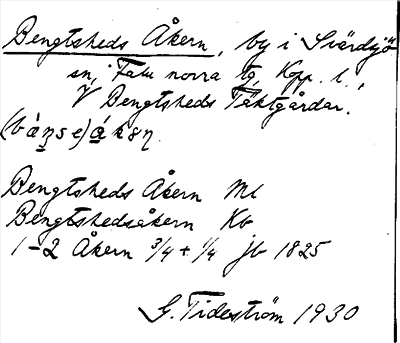 Bengtsheds Åkern, by i Svärdsjö
sn, Falu norra tg, Kopp. l.,
V Bengtsheds Täktgårdar.
Bengtsheds Åkern Ml
Bengtshedsåkern Kb
1–2 Åkern 3/4 + 1/4 jb 1825
G. Tideström 1930